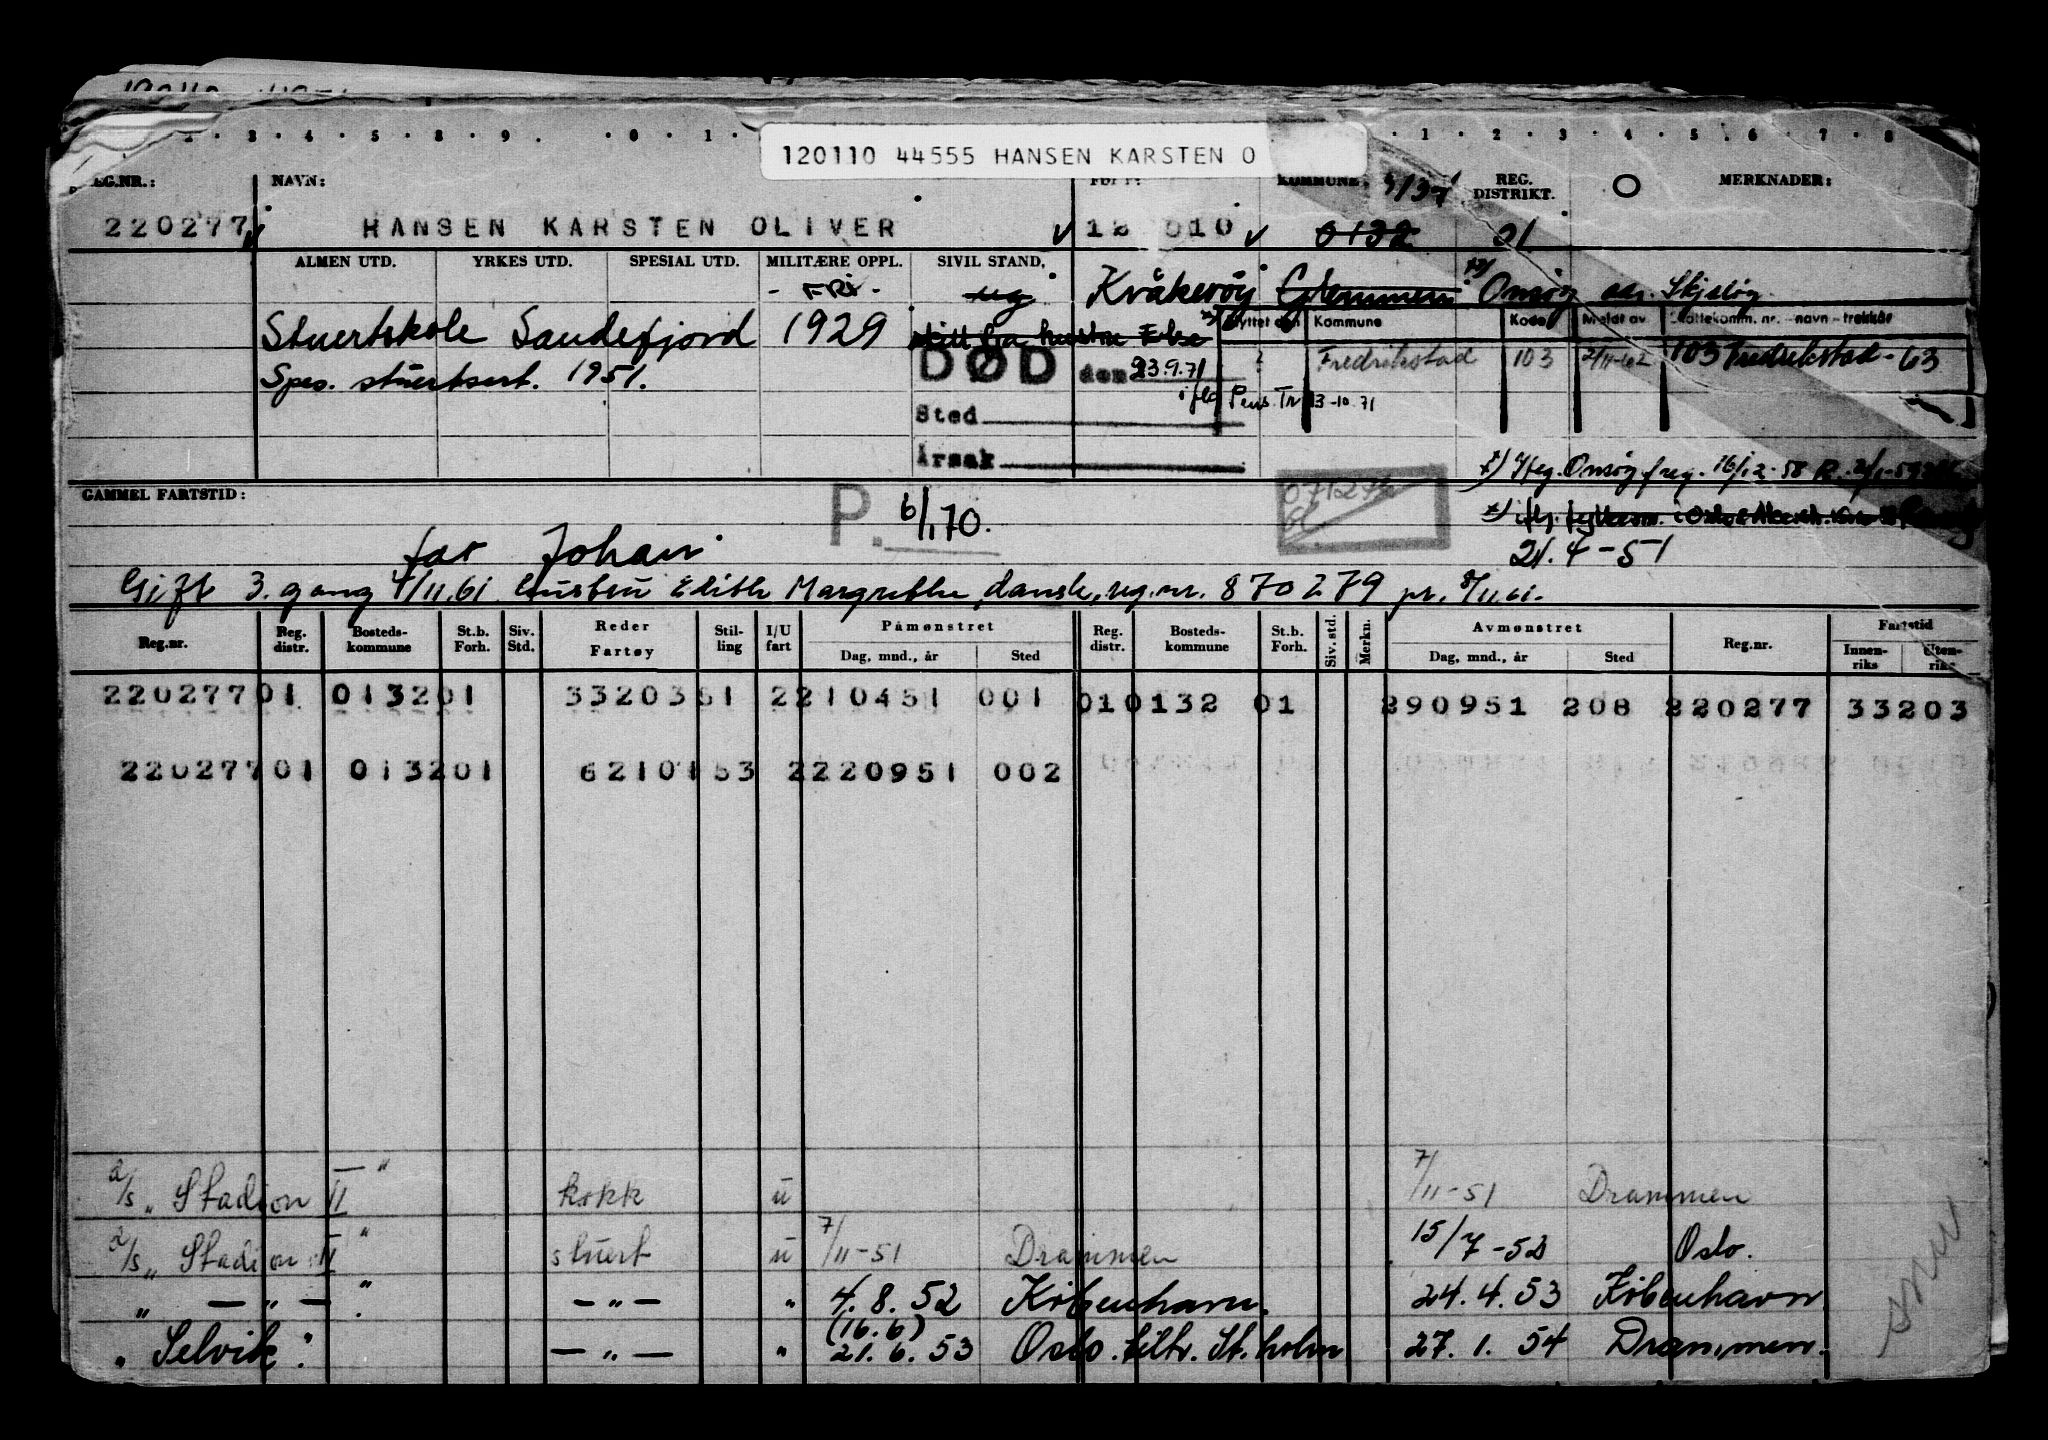 120110 44555 HANSEN KARSTEN O
REG.NR.: NAVN: FØDT: KOMMUNE: REG. DISTRIKT. O MERKNADER:
220277 HANSEN KARSTEN OLIVER 12 010 0132 01
ALMEN UTD. YRKES UTD. SPESIAL UTD. MILITÆRE OPPL. SIVIL STAND,
- FRI - ug Kråkerøy Glemmen Onsøy Skjeløy
Stuertskole Sandefjord 1929
Flyttet den Kommune Kode Meldt av Skattekomm. nr. - navn - trekkår
DØD den 23.9.71 ? Fredrikstad 103 2/11-62 103 Fredrikstad - 63
Spes. stuertsert. 1951.
Pens. Tr 13-10.71
Sted
Årsak
Onsøy f.reg. 16/12-58
GAMMEL FARTSTID: P. 6/1 70.
21.4-51
far Johan
Gift 3. gang 4/11.61 hustru Edith Margrethe, dansk, reg.nr. 870279 pr. 8/11.61.
Reg.nr. Reg. distr. Bosteds-kommune St.b. Forh. Siv. Std. Reder Fartøy Stil-ling I/U fart Påmønstret Dag, mnd., år Sted Reg. distr. Bosteds-kommune St.b. Forh. Siv. std. Merkn. Avmønstret Dag, mnd., år Sted Reg.nr. Fartstid Innen-riks Uten-riks
220277 01 0132 01 33203 51 2 210451 001 01 0132 01 290951 208 220277 33203
220277 01 0132 01 62101 53 2 220951 002
d/s "Stadion II" kokk u 7/11-51 Drammen
d/s "Stadion II" stuert u 7/11-51 Drammen 15/7-52 Oslo.
" — " — " — " — " 4.8.52 København. 24.4.53 København
(16.6)
"Selvik" — " — " 21.6.53 Oslo. tiltr. St.holm 27.1.54 Drammen.